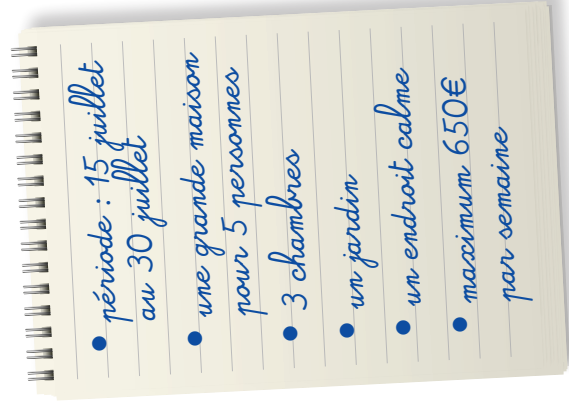 • période : 15 juillet
au 30 juillet
• une grande maison
pour 5 personnes
• 3 chambres
• un jardin
• un endroit calme
• maximum 650€
par semaine